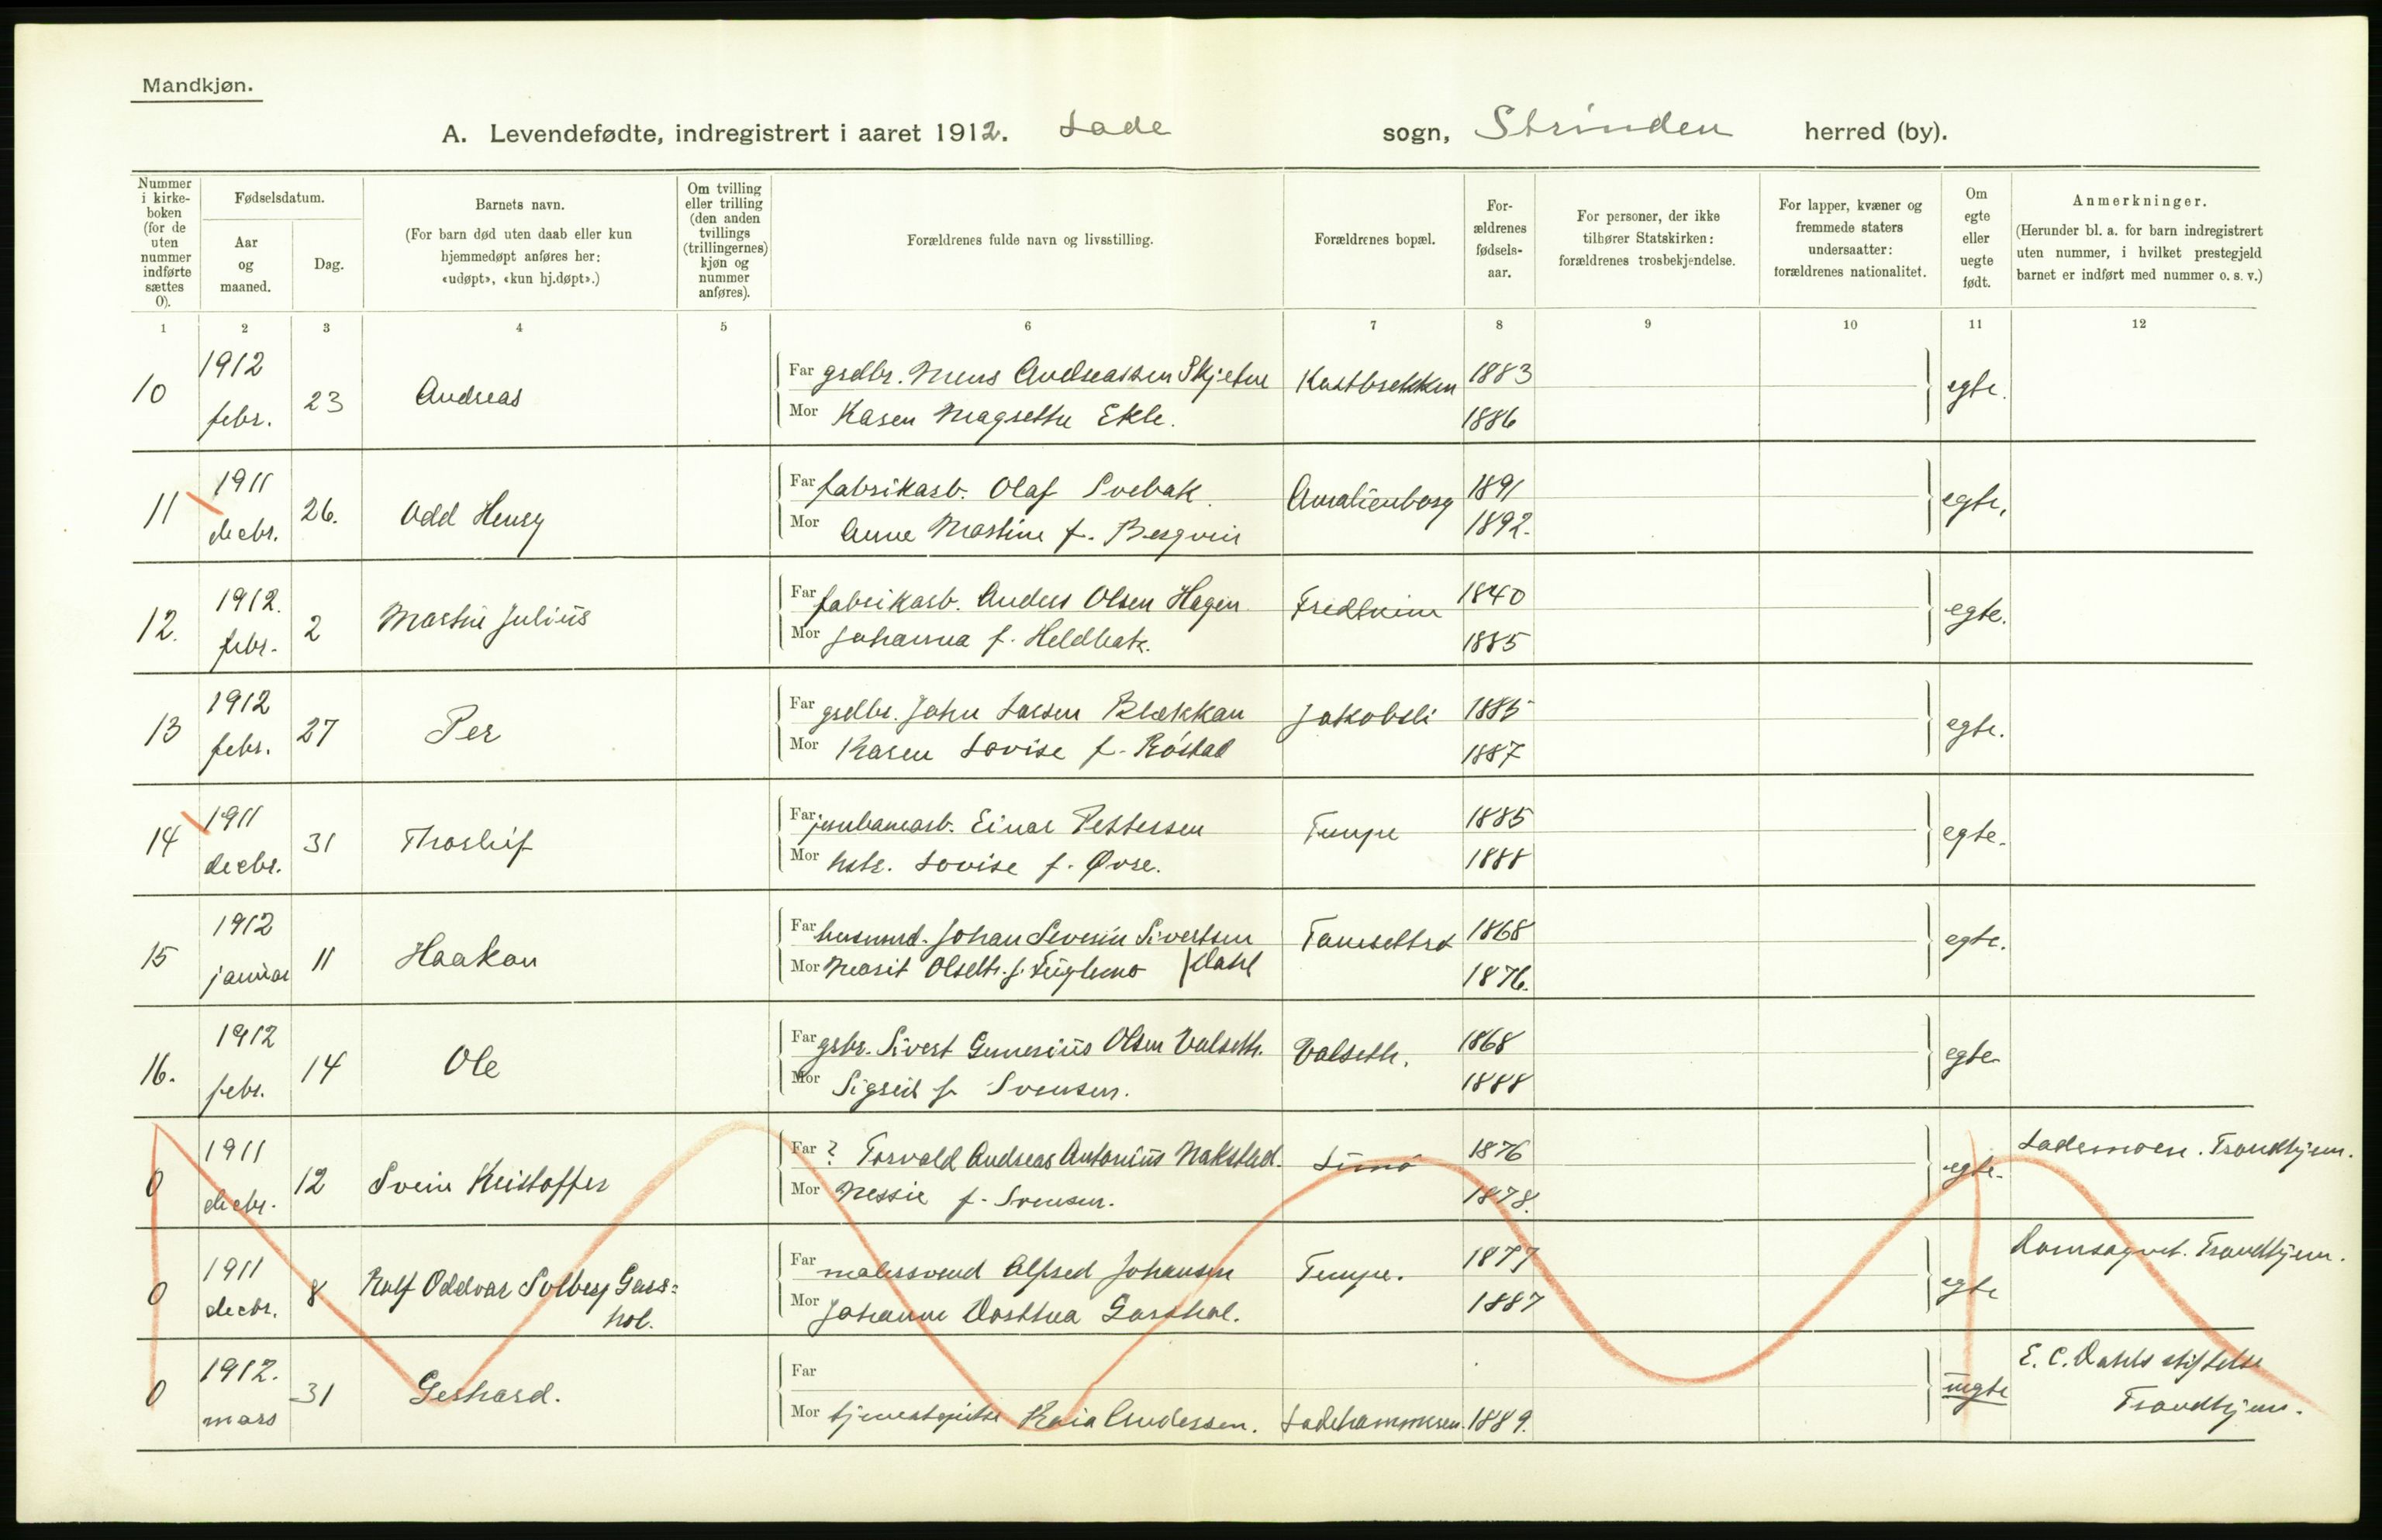 Mandkjøn.
A. Levendefødte, indregistrert i aaret 1912. Lade sogn, Strinden herred (by).
Nummer i kirke-boken (for de uten nummer indførte sættes 0).
Fødselsdatum.
Aar og maaned.
Dag.
Barnets navn.
(For barn død uten daab eller kun hjemmedøpt anføres her: «udøpt», «kun hj.døpt».)
Om tvilling eller trilling (den anden tvillings (trillingernes) kjøn og nummer anføres).
Forældrenes fulde navn og livsstilling.
Forældrenes bopæl.
For-ældrenes fødsels-aar.
For personer, der ikke tilhører Statskirken: forældrenes trosbekjendelse.
For lapper, kvæner og fremmede staters undersaatter: forældrenes nationalitet.
Om egte eller uegte født.
Anmerkninger.
(Herunder bl. a. for barn indregistrert uten nummer, i hvilket prestegjeld barnet er indført med nummer o. s. v.)
1 2 3 4 5 6 7 8 9 10 11 12
10 1912 febr. 23 Andreas
Far grdbr. Mons Andreassen Skjetne Kastbrekken 1883
Mor Karen Magrethe Ekle. 1886 egte.
11 1911 decbr. 26. Odd Henry
Far fabrikarb. Olaf Svebak. Amalienborg 1891
Mor Anne Martine f. 1892. egte.
12. 1912. febr. 2 Martin Julius
Far fabrikarb. Anders Olsen Hagen Fredheim 1840
Mor Johanna f. 1885 egte.
13 1912 febr. 27 Per
Far grdbr. John Larsen Blækkan Jakobsli 1885
Mor Karen Lovise f. Røstad 1887 egte.
14 1911 decbr. 31 Thorleif
Far jernbanearb. Einar Pettersen Tempe 1885
Mor hstr. Lovise f. Øvre. 1888 egte.
15 1912 januar 11 Haakon
Far husmd. Johan Severin Sivertsen 1868
Mor Marit Olsdtr. f. Fuglemo / Dahl 1876. egte.
16. 1912 febr. 14 Ole
Far grbr. Sivert Gunerius Olsen Valseth. Valseth. 1868
Mor Sigrid f. Svensen. 1888 egte
0 1911 decbr. 12 Svein Kristoffer
Far ? Torvald Andreas Antonius Nakstad. 1876
Mor Nessie f. Svensen. 1878. egte. Lademoen. Trondhjem.
0 1911 decbr. 8 Rolf Oddvar Solberg Gars=
hol.
Far malersvend Alfred Johansen Tempe. 1877
Mor Johanne Dorthea Garshol. 1887 egte Domsognet. Trondhjem.
0 1912. mars 31 Gerhard.
Far
Mor tjenestepike Kaia Andersen. Ladehammeren. 1889. uegte E. C. Dahls stiftelse
Trondhjem.